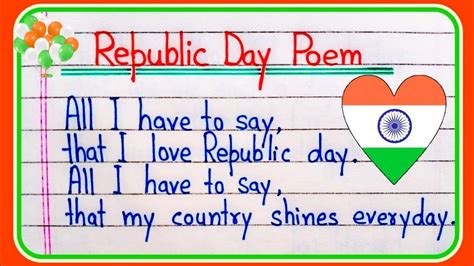 Republic Day Poem
All I have to say,
that I love Republic day.
All I have to say,
that my country shines everyday.